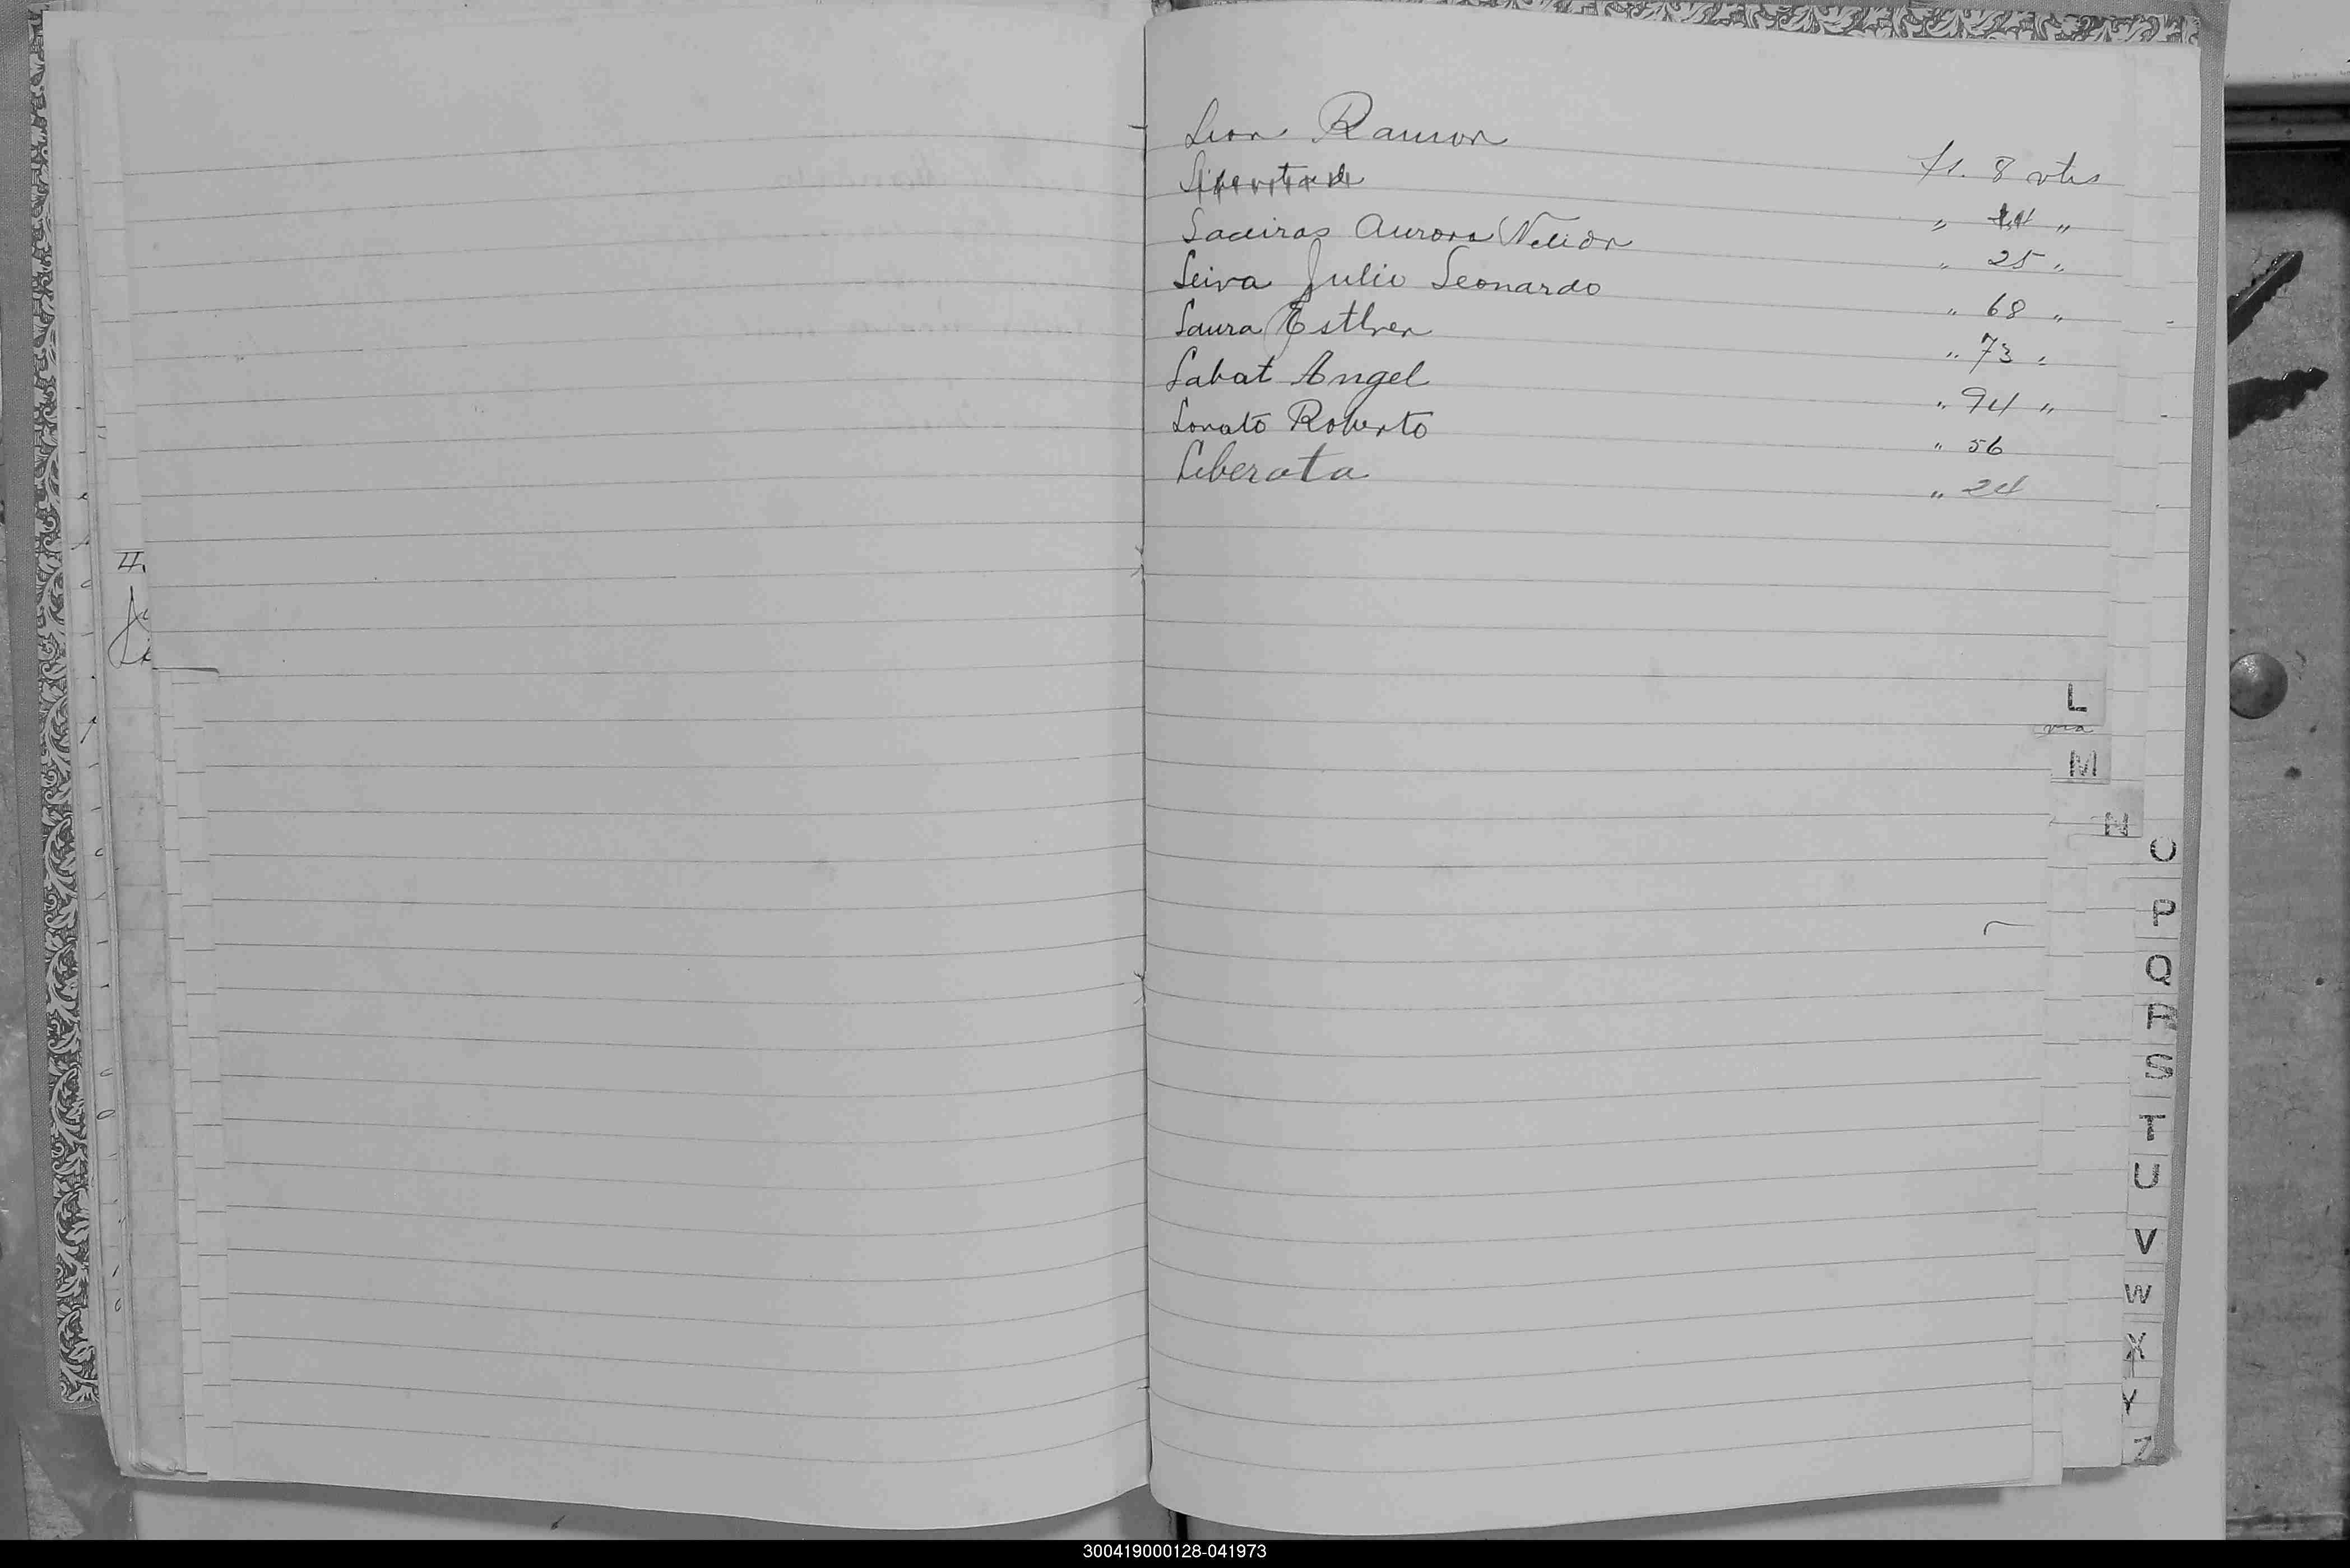 Leon Ramon fs. 8 vta
Libertad " 14 "
Laceiras Aurora Nelida " 25 "
Leiva Julio Leonardo " 68 "
Laura Esther " 73 "
Labat Angel " 94 "
Lonato Roberto " 56
Liberata " 24
L
M
N
O
P
Q
R
S
T
U
V
W
X
Y
Z
300419000128-041973